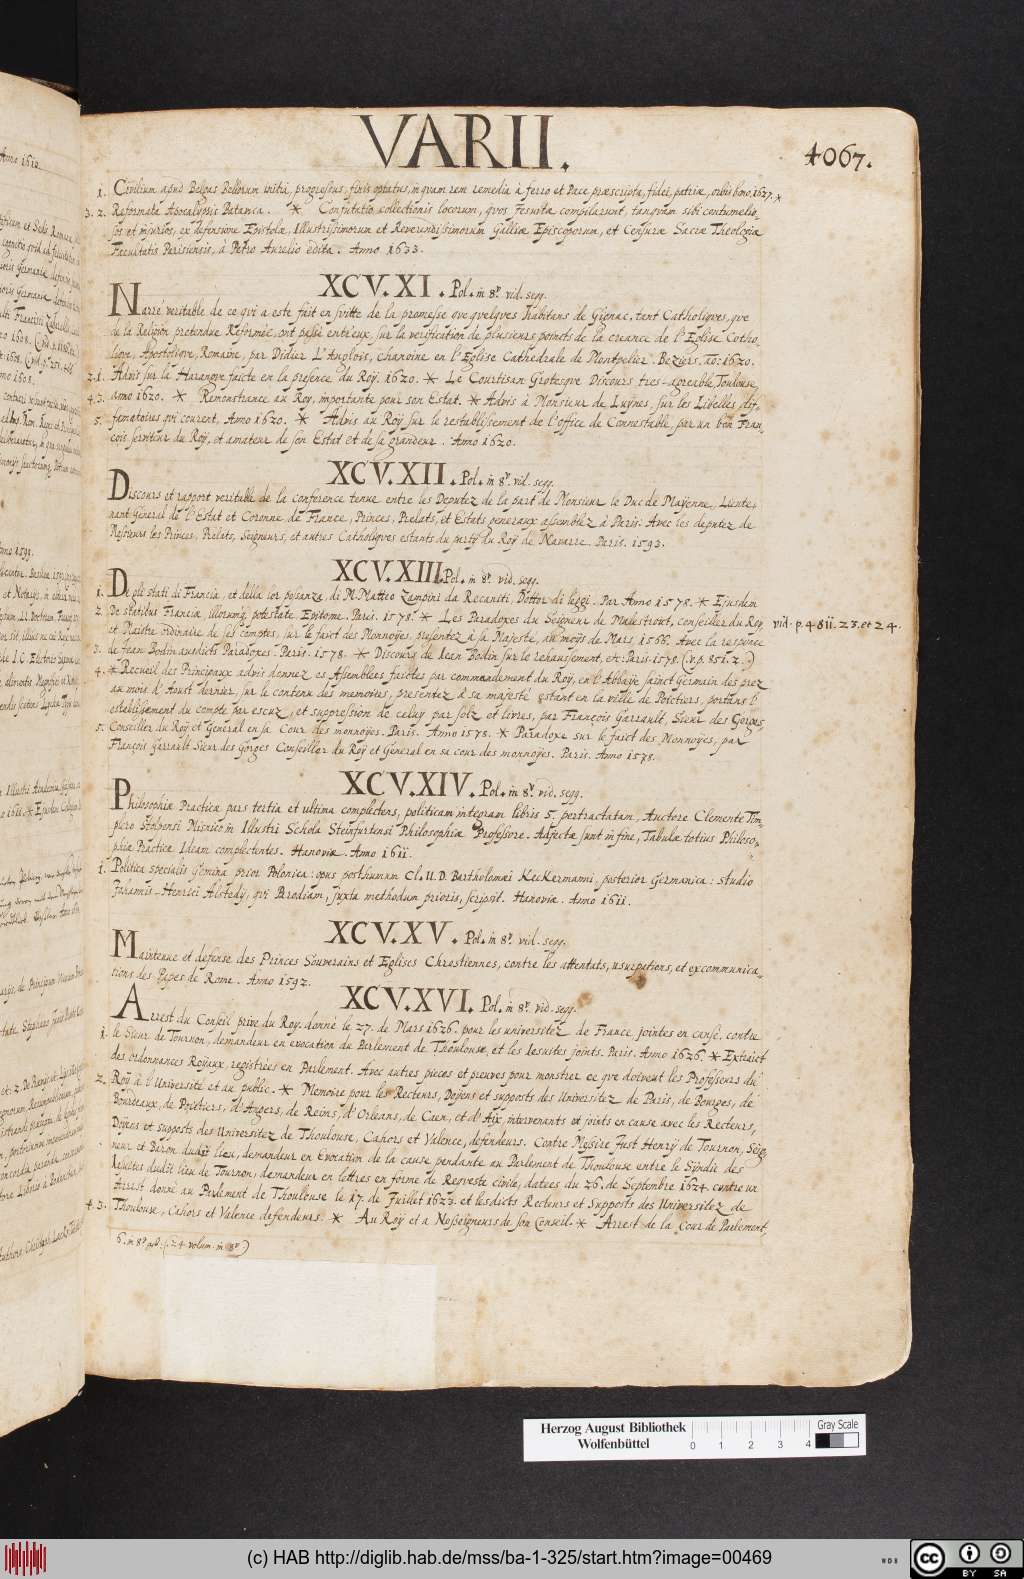 VARII.
4067.
1. Civilium apud Belgas Bellorum initia, progressus, finis optatus, inquam rem remedia à ferro et Pace præscripta, fidei, patriæ, orbis bono. 1627. *
3. 2. Reformata Apocalypsis Batavica. * Confutatio collectionis locorum, quos Jesuitæ compilarunt, tanquam sibi contumelio-
sos et injurios, ex defensione Epistolæ, Illustrissimorum et Reverendissimorum Galliæ Episcoporum, et Censuræ Sacræ Theologiæ
Facultatis Parisiensis, à Petro Aurelio edita. Anno 1633.
XCV. XI. Pol. in 8º. vid. segg.
Narré veritable de ce qui a este fait en suitte de la promesse que quelques habitans de Gignac, tant Catholiques, que
de la Religion pretendue Reformée, ont passé entr'eux, sur la verification de plusieurs poincts de la creance de l'Eglise Catho-
lique, Apostolique, Romaine, par Didier L'Anglois, chanoine en l'Eglise Cathedrale de Montpelier. Beziers. ao: 1620.
2. 1. Advis sur la Harangue faicte en la presence du Roy. 1620. * Le Courtisan Grotesque Discours tres-agreable, Toulouse
4. 3. anno 1620. * Remonstrance au Roy, importante pour son Estat. * Advis à Monsieur de Luynes, sur les Libelles dif-
5. famatoires qui courent, Anno 1620. * Advis au Roÿ sur le restablissement de l'office de Connestable, par un bon Fran-
cois serviteur du Roy, et amateur de son Estat et de sa grandeur. Anno 1620.
XCV. XII. Pol. in 8º. vid. segg.
Discours et rapport veritable de la conference tenue entre les Deputez de la part de Monsieur le Duc de Maÿenne, Lieute-
nant General de l'Estat et Coronne de France, Princes, Prelats, et Estats generaux assemblez à Paris: Avec les deputez de
Messieurs les Princes, Prelats, Seigneurs, et autres Catholiques estants du party du Roÿ de Navarre. Paris. 1593.
XCV. XIII. Pol. in 8º. vid. segg.
1. De gli stati di Francia, et della lor possanza, di M. Matteo Zampini da Recanati, Dottor di leggi. Par Anno 1578. * Ejusdem
2. De statibus Franciæ, illorumq. potestate Epitome. Paris. 1578. * Les Paradoxes du Seigneur de Malestrout, conseiller du Roy, vid. p. 4811. 23. et 24.
et Maistre ordinaire de ses comptes, sur le faict des Monnoÿes, presentez à sa Majesté, au moÿs de Mars 1566. Avec la responce
3. de Jean Bodin ausdicts Paradoxes. Paris. 1578. * Discours de Jean Bodin sur le rehaussement, etc. Paris. 1578. (v. p. 851. 2.)
4. * Recueil des Principaux advis donnez es Assemblees faictes par commandement du Roy, en l'Abbaÿe sainct Germain des prez
au mois d'Aoust dernier, sur le contenu des memoires, presentez à sa majesté estant en la ville de Poictiers, portans l'
establissement du compte par escuz, et suppression de celuy par solz et livres, par François Garrault, Sieur des Gorges,
5. Conseiller du Roÿ et General en sa Cour des monnoÿes. Paris. Anno 1578. * Paradoxe sur le faict des Monnoÿes, par
François Garrault Sieur des Gorges Conseiller du Roÿ et General en sa cour des monnoÿes. Paris. Anno 1578.
XCV. XIV. Pol. in 8º. vid. segg.
Philosophiæ Practicæ pars tertia et ultima complectens, politicam integram libris 5. pertractatam, Auctore Clemente Tim-
plero Stolpensi Misnico in Illustri Schola Steinfurtensi Philosophiæ Professore. Adjectæ sunt in fine, Tabulæ totius Philoso-
phiæ Practicæ Ideam complectentes. Hanoviæ. Anno 1611.
1. Politica specialis Gemina prior Polonica: opus posthumum Cl. U. D. Bartholomæi Keckermanni, posterior Germanica: studio
Johannis-Henrici Alstedÿ, qui Parodiam, juxta methodum prioris, scripsit. Hanoviæ. Anno 1611.
XCV. XV. Pol. in 8º. vid. segg.
Maintenue et defense des Princes Souverains et Eglises Chrestiennes, contre les attentats, usurpations, et excommunica-
tions des Papes de Rome. Anno 1592.
XCV. XVI. Pol. in 8º. vid. segg.
Arrest du Conseil prive du Roy. donné le 27. de Mars 1626. pour les universitez de France, jointes en cause, contre
1. le Sieur de Tournon, demandeur en evocation du Parlement de Thoulouse, et les Iesustes joints. Paris. Anno 1626. * Extraict
des ordonnances Roÿaux, registrées en Parlement. Avec autres pieces et preuves pour monstrer ce que doivent les Professeurs du
2. Roÿ à l'Université et au public. * Memoire pour les Recteurs, Doÿens et supposts des Universitez de Paris, de Bourges, de
Bourdeaux, de Poictiers, d'Angers, de Reins, d'Orleans, de Caen, et d'Aix, intervenants et joints en cause avec les Recteurs,
Doÿens et supposts des Universitez de Thoulouse, Cahors et Valence, defendeurs. Contre Messire Just Henrÿ de Tournon, Seig-
neur et Baron dudit lieu, demandeur en Evocation de la cause pendante au Parlement de Thoulouse entre le Sÿndic des
Iesuites dudit lieu de Tournon, demandeur en lettres en forme de Requeste civile, datees du 26. de Septembre 1624. contre un
Arrest donné au Parlement de Thoulouse le 17. de Juillet 1623. et lesdicts Recteurs et Supposts des Universitez de
4. 3. Thoulouse, Cahors et Valence defendeurs. * Au Roÿ et a Nosseigneurs de son Conseil. * Arrest de la Cour de Parlement,
Herzog August Bibliothek
Wolfenbüttel
0 1 2 3 4
Gray Scale
(c) HAB http://diglib.hab.de/mss/ba-1-325/start.htm?image=00469
WDB
cc
BY SA